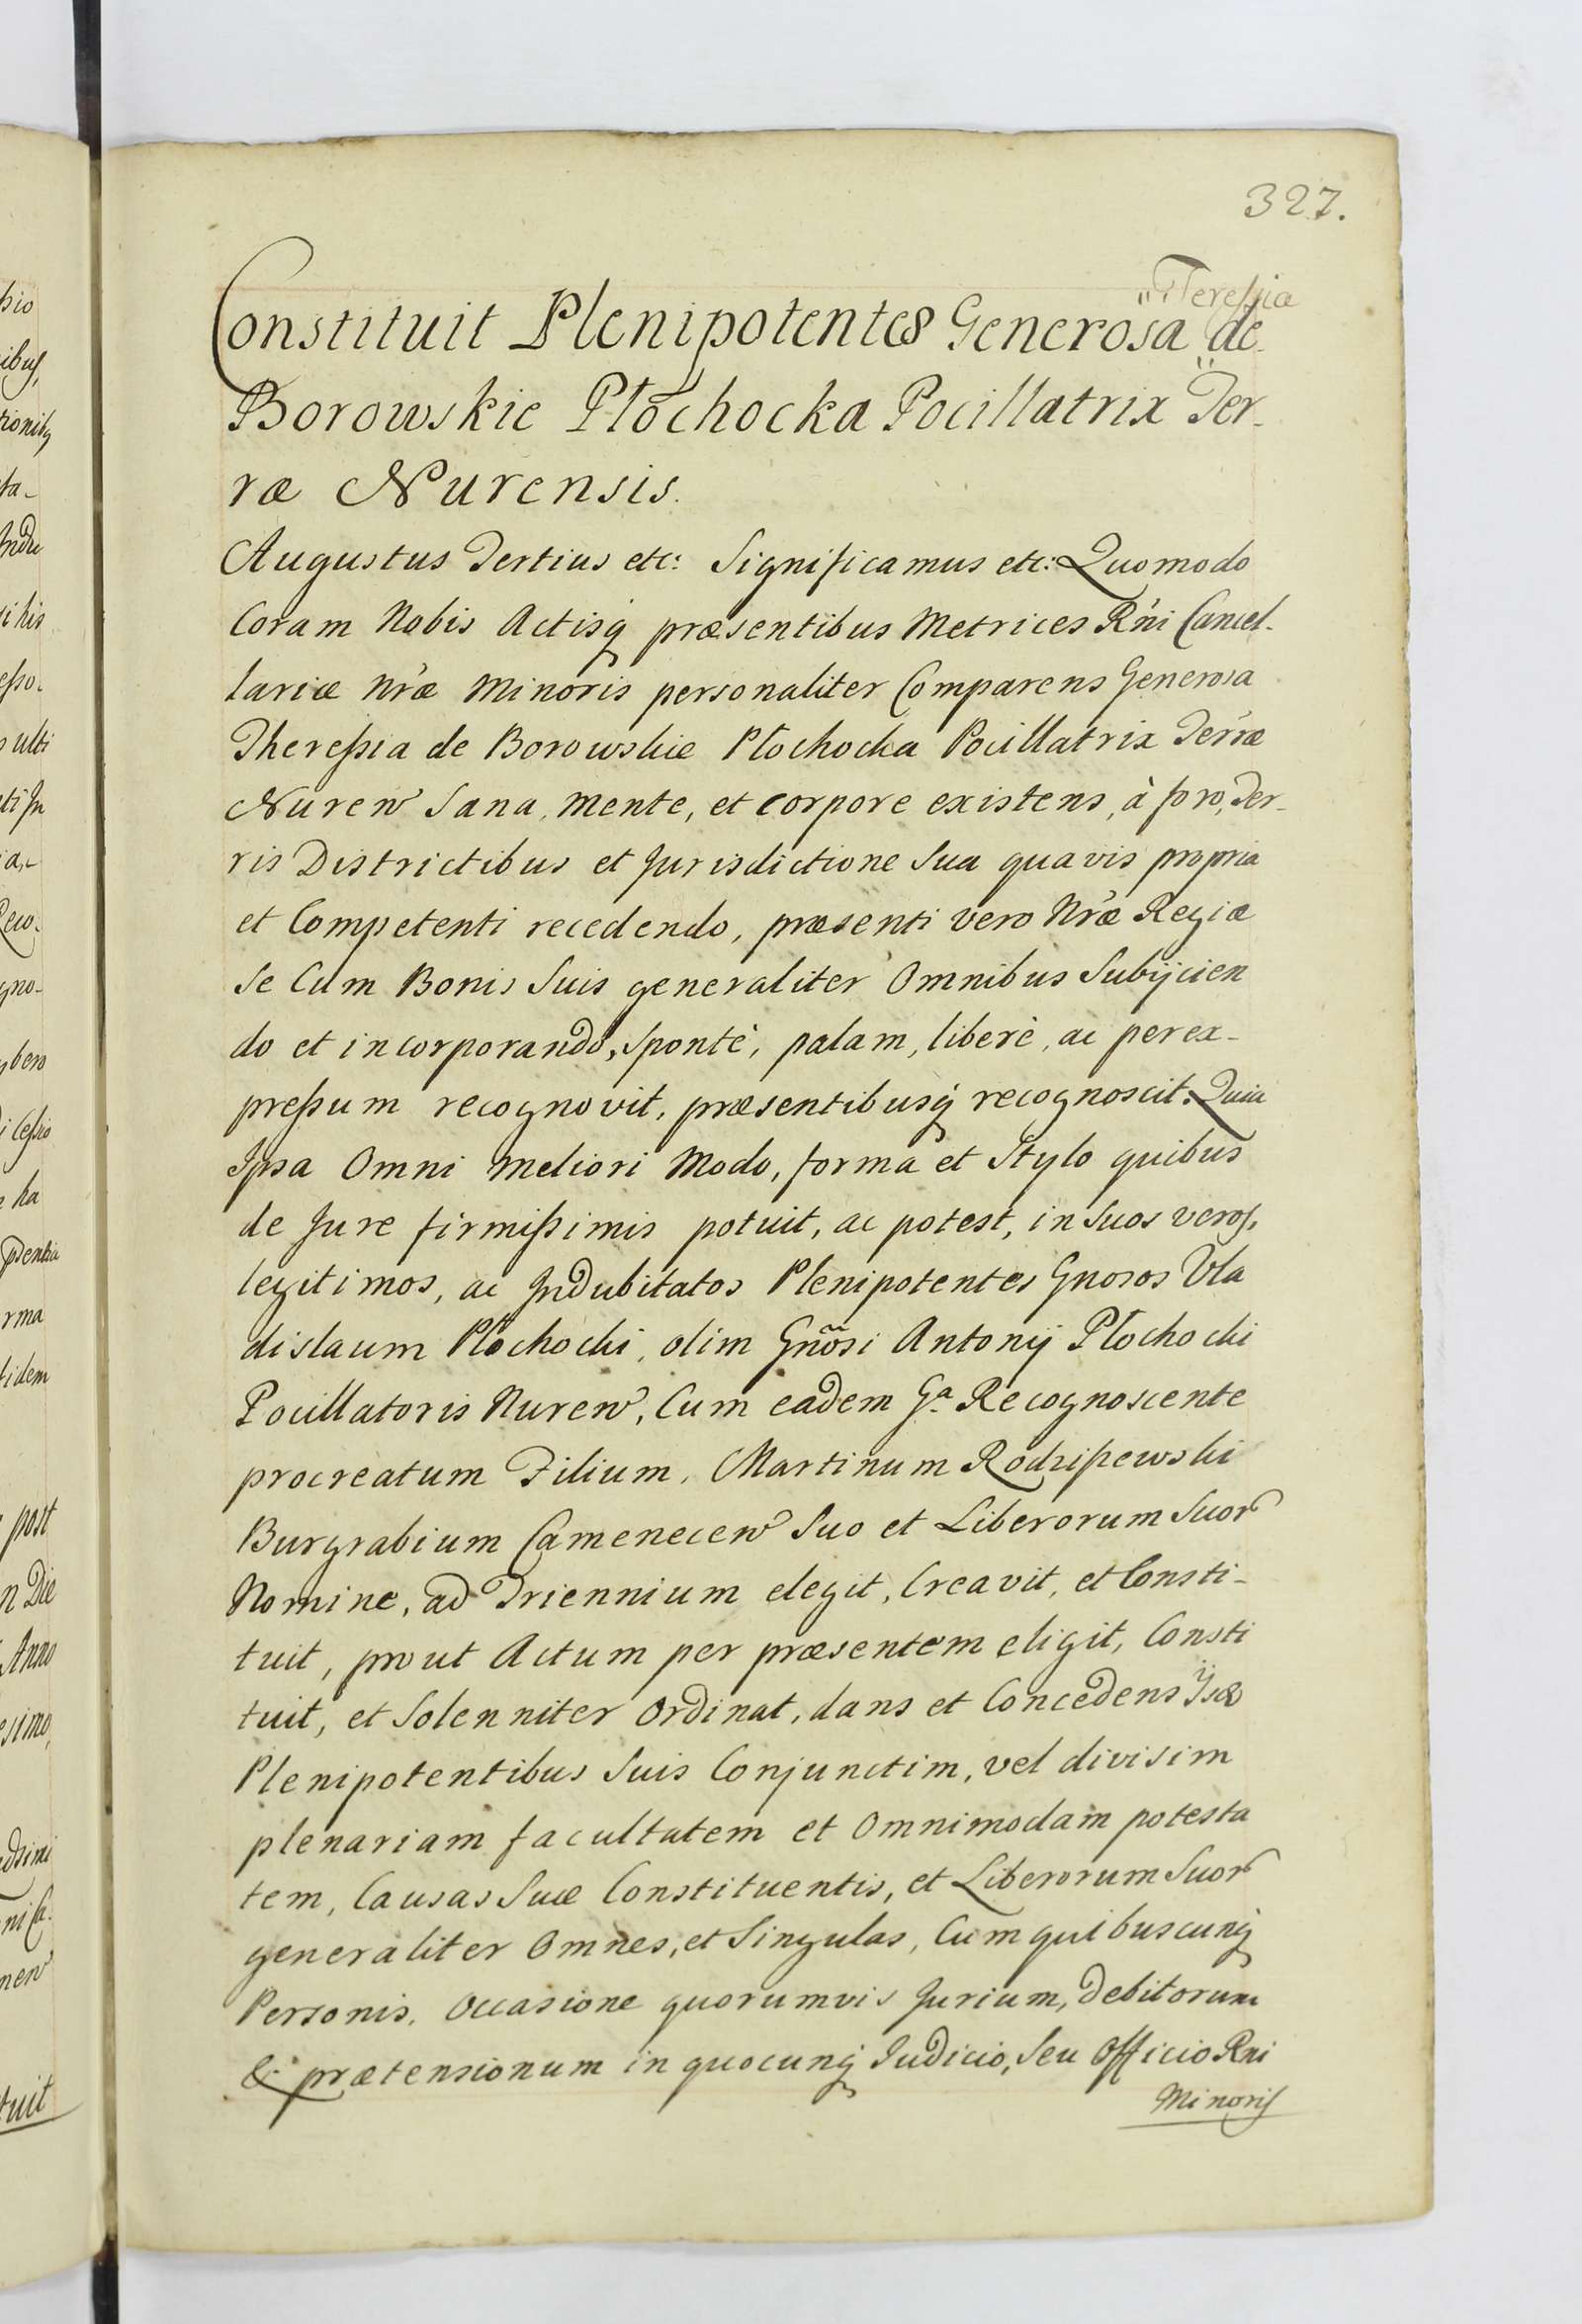 327.
"Teressia
Constituit Plenipotentes Generosa " de
Borowskie Płochocka Pocillatrix Ter-
ræ Nurensis.
Augustus Tertius etc: Significamus etc: Quomodo
Coram Nobis Actisq præsentibus Metrices R'ni Cancel-
lariæ Nr'æ Minoris personaliter Comparens Generosa
Theressia de Borowskie Płochocka Pocillatrix Ter'ræ
Nuren Sana, mente, et corpore existens, à foro, Ter-
ris Districtibus et Jurisdictione Sua quavis propria
et Competenti recedendo, præsenti vero Nr'æ Regiæ
Se Cum Bonis Suis generaliter Omnibus Subijcien
do et incorporando, sponte, palam, liberè, ac per ex-
pressum recognovit, præsentibusq recognoscit. Quia
Ipsa Omni meliori Modo, forma et Stylo quibus
de Jure firmissimis potuit, ac potest, in Suos veros,
legitimos, ac Indubitatos Plenipotentes Gnosos Vla
dislaum Płochocki, olim Gnõsi Antonij Płochocki
Pocillatoris Nuren, Cum eadem Ga. Recognoscente
procreatum Filium, Martinum
Burgrabium Camenecen Suo et Liberorum Suor
Nomine, ad Triennium elegit, Creavit, et Consti-
tuit, prout Actum per præsentem eligit, Consti
tuit, et Solenniter Ordinat, dans et Concedens
Plenipotentibus Suis Conjunctim, vel divisim
plenariam facultatem et Omnimodam potesta
tem, Causas Suæ Constituentis, et Liberorum Suor
generaliter Omnes, et Singulas, Cum quibuscunq
Personis, Occasione quorumvis Jurium, Debitorum
& prætensionum in quocunq Judicio, Seu Officio Rni
Minoris